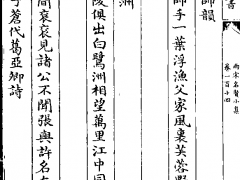 書
兩宋名賢小集
卷一百十四
師韻
師手一葉浮漁父家風裏芙蓉
洲
陵俱出白鷺洲相望萬里江中同
間裒裒見諸公不聞張與許名
子蒼代葛亞卿詩